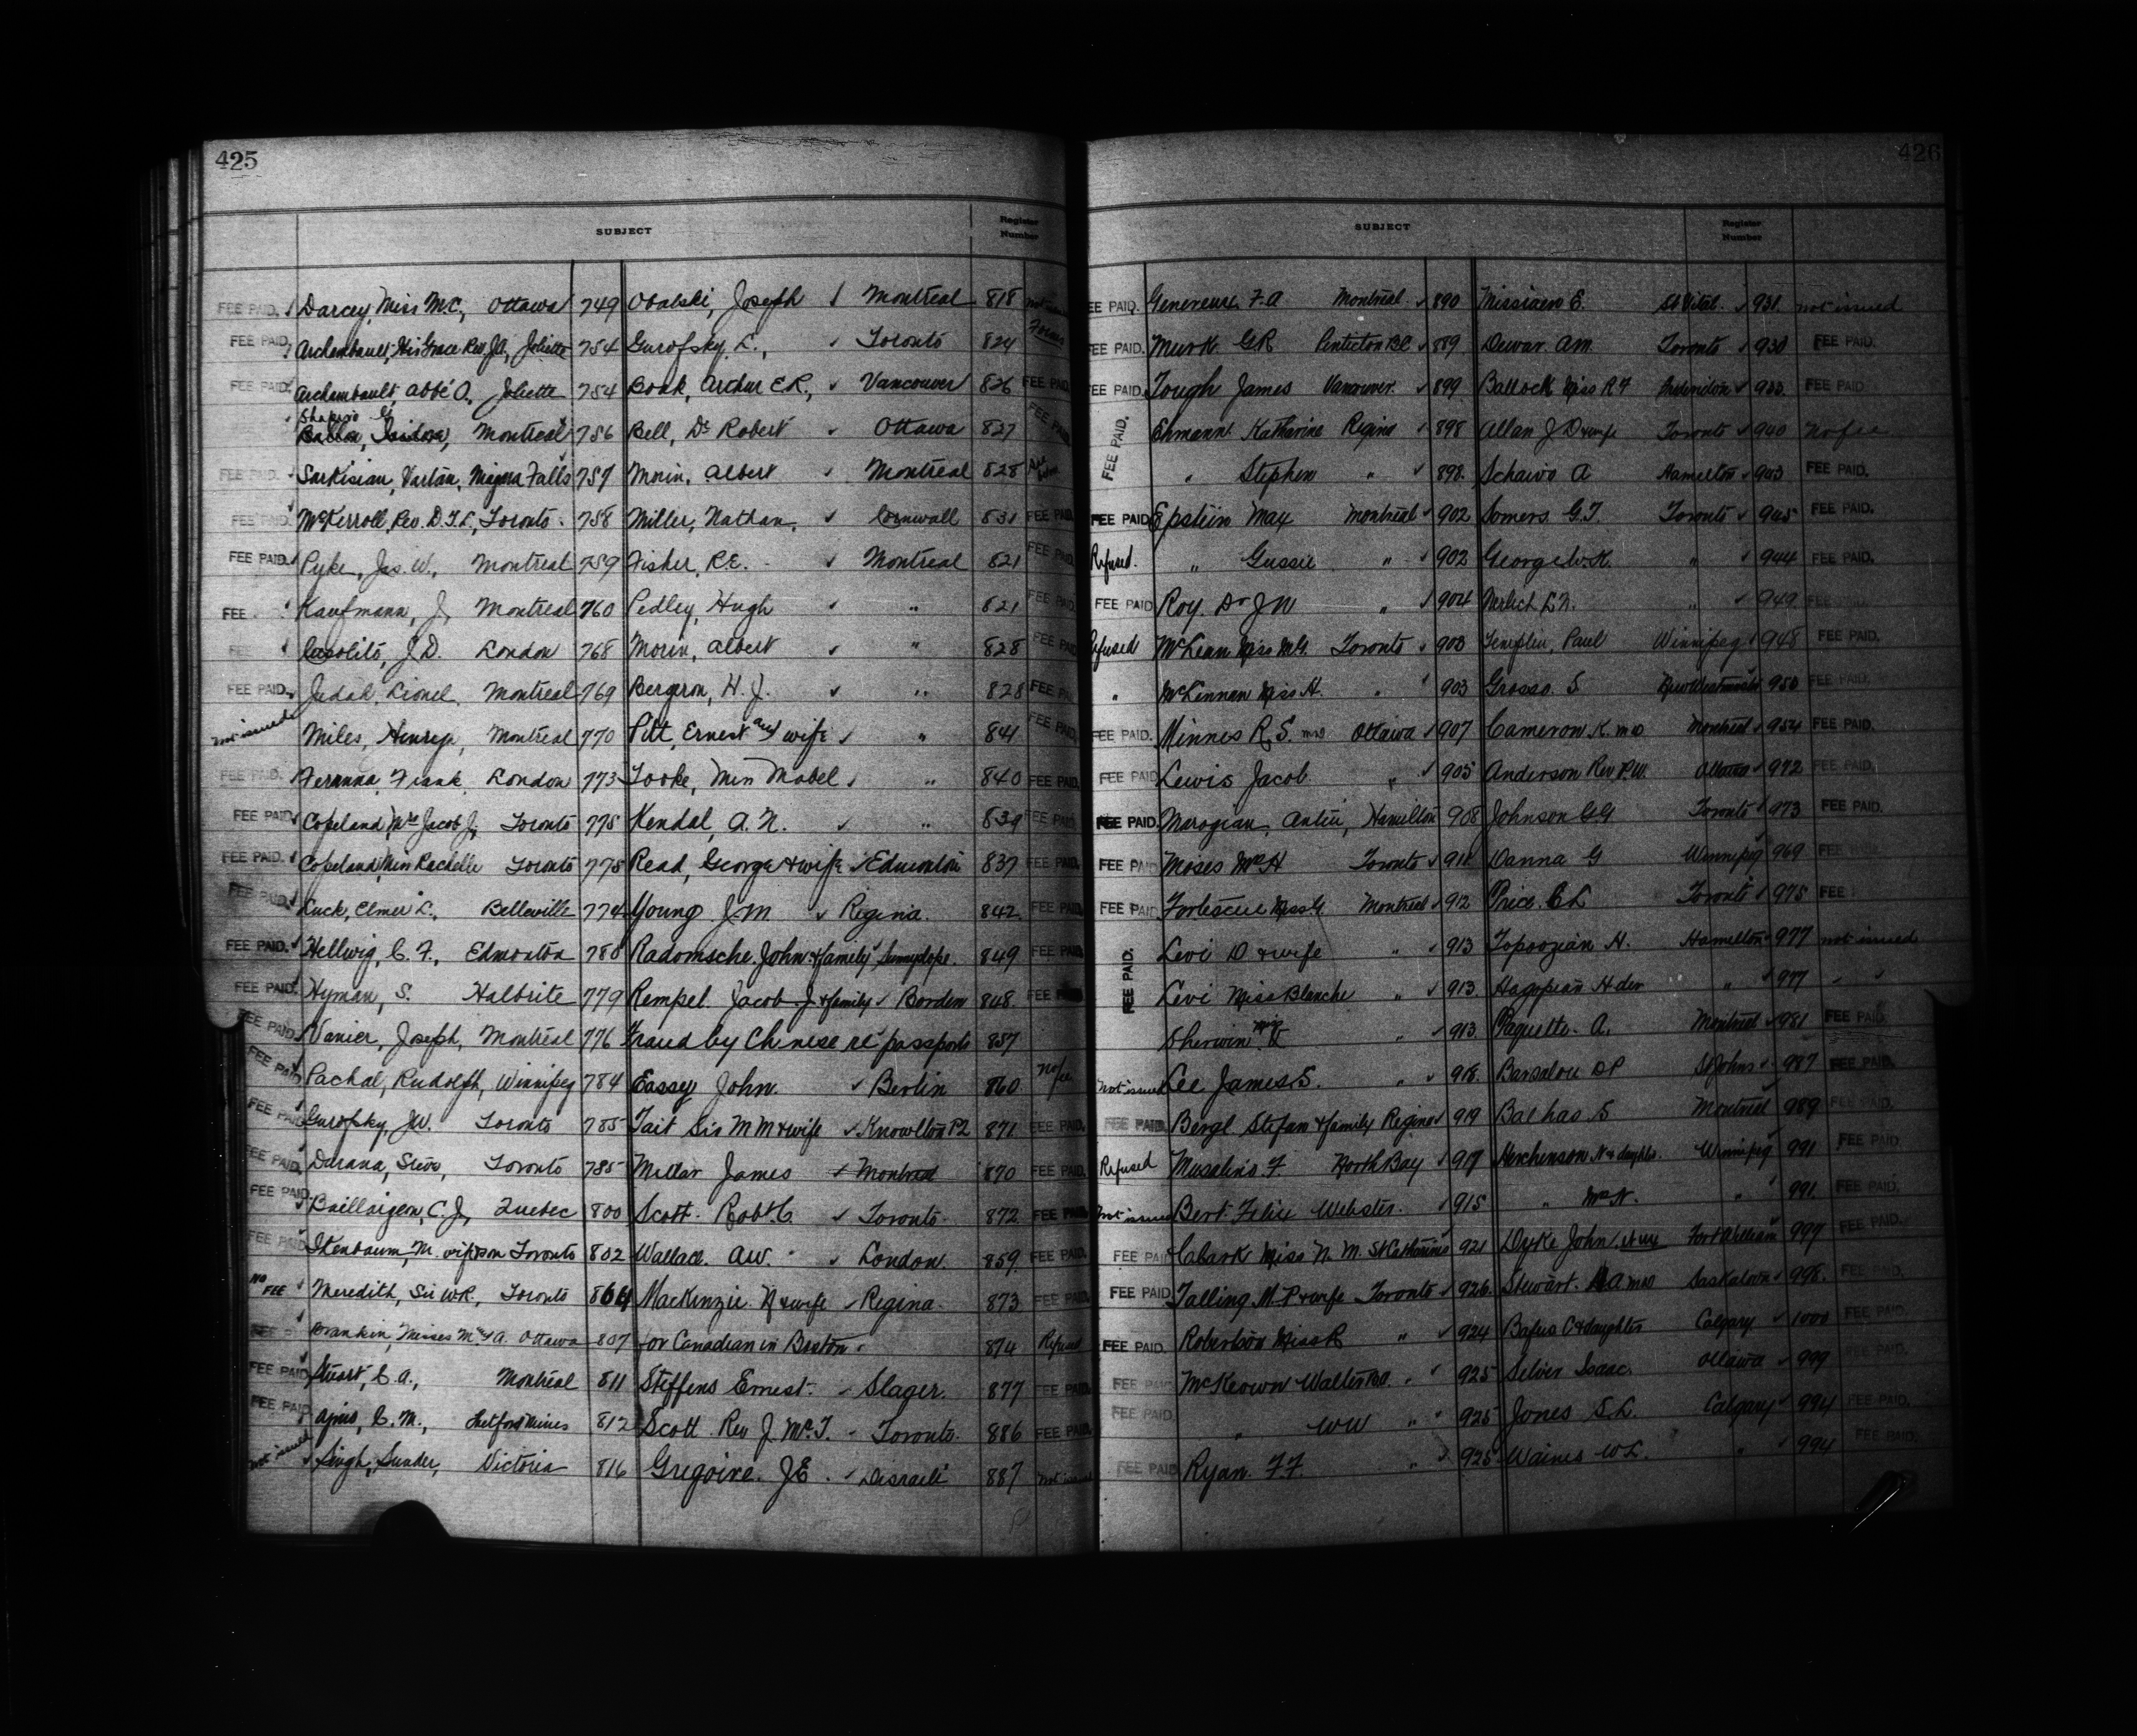 425
SUBJECT
Register Number
FEE PAID. Darcey, Miss M.C., Ottawa 749 Obalski, Joseph Montreal 818
FEE PAID. Archambault, His Grace Rev. J.A., Joliette 754 Gurofsky, L., Toronto 824
FEE PAID. Archambault, abbé O., Joliette 754 Book, Arthur E.R., Vancouver 826 FEE PAID
Shapiro G
Ballon, Isidore, Montreal 756 Bell, Dr Robert Ottawa 827 FEE PAID
FEE PAID. Sarkisian, Vartan, Niagara Falls 757 Morin, Albert Montreal 828
FEE PAID. McKerroll, Rev. D.T.L., Toronto. 758 Miller, Nathan, Cornwall 831 FEE PAID
FEE PAID. Pyke, Jas. W., Montreal 759 Fisher, R.E. Montreal 821 FEE PAID
FEE Kaufmann, J, Montreal 760 Pedley, Hugh " 821 FEE PAID
FEE J.D. London 768 Morin, Albert " 828 FEE PAID
FEE PAID. Judah, Lionel, Montreal 769 Bergeron, H.J. " 828 FEE PAID
not issued Miles, Henry, Montreal 770 Pitt, Ernest and wife " 841 FEE PAID
FEE PAID. Feranna, Frank, London 773 Tooke, Miss Mabel " 840 FEE PAID.
FEE PAID Copeland, Mrs Jacob J, Toronto 775 Kendal, A.N. " 839 FEE PAID
FEE PAID. Copeland, Miss Rachelle Toronto 775 Read, George & wife Edmonton 837 FEE PAID
FEE PAID. Luck, Elmer L., Belleville 774 Young J M Regina. 842 FEE PAID
FEE PAID. Hellwig, C.F., Edmonton 780 Radomsche. John & family Sunnyslope. 849 FEE PAID
FEE PAID. Hyman, S. Halbrite 779 Rempel Jacob. J & family Borden 848. FEE
FEE PAID. Vanier, Joseph, Montreal 776 Fraud by Chinese re passports 857
FEE PAID Pachal, Rudolph, Winnipeg 784 Eassey John. Berlin 860 no fee
FEE PAID Gurofsky, J.W. Toronto 785 Tait Sir M M & wife Knowlton P2 871 FEE PAID.
FEE PAID. Durana, Toronto 785 Millar James Montreal 870 FEE PAID.
FEE PAID Baillairgeon, C.J, Quebec 800 Scott. Robt C. Toronto. 872 FEE PAID
FEE PAID M. wife & son Toronto 802 Wallace. A W. London 859. FEE PAID.
NO FEE Meredith, Sir W.R., Toronto 864 MacKenzie. N & wife Regina. 873 FEE PAID
Misses M & A. Ottawa 807 for Canadian in Boston 874 Refused
FEE PAID. Stuart, C.A., Montreal 811 Steffens Ernest. Slager. 877 FEE PAID
FEE PAID. C.M., Thetford Mines 812 Scott Rev J. McT. Toronto. 886 FEE PAID.
not issued Singh, Sunder, Victoria 816 Gregoire. J E. Disraeli 887 not issued
426
SUBJECT
Register Number
FEE PAID. Genereux F.A Montreal 890 Missiaen E. St Vital. 931. not issued
FEE PAID. Murk G R Penticton BC 889 Dewar. A M. Toronto 930 FEE PAID.
FEE PAID. Tough James Vancouver. 899 Ballock Miss R F Fredericton 933. FEE PAID
FEE PAID. Ehmann Katharina Regina 898 Allan J D & wife Toronto 940 No fee
" Stephen " 898. Schaivo A Hamilton 943 FEE PAID.
FEE PAID Epstein Max Montreal 902 Somers. G.T. Toronto 945 FEE PAID.
Refused. " Gussie " 902 George W.K. " 944 FEE PAID.
FEE PAID Roy. Dr J N " 904 Nerlich L.N. " 949 FEE PAID.
Refused McLean Miss M.G. Toronto 903 Templin, Paul Winnipeg 948 FEE PAID.
" McKinnan Miss A. " 903 Grosso. S New Westminster 950 FEE PAID
FEE PAID. Minnes R.S. Mrs Ottawa 907 Cameron K. Mrs Montreal 954 FEE PAID.
FEE PAID Lewis Jacob " 905 Anderson Rev P.W. Ottawa 972 FEE PAID.
FEE PAID. Marogian, Hamilton 908 Johnson G G Toronto 973 FEE PAID.
FEE PAID Moses Mrs H Toronto 911 Danna G Winnipeg 969 FEE
FEE PAID. Fortescue Miss G. Montreal 912 Price. C L Toronto 975 FEE
FEE PAID. Levi D & wife " 913 Topoozian H. Hamilton 977 not issued
Levi Miss Blanche " 913. Hagopian H der " 977 " "
Sherwin " 913. Paquette. A. Montreal 981 FEE PAID
not issued Lee James S. " 918. Barsalou D P St Johns 987 FEE PAID.
FEE PAID. Bergl Stefan & family Regina 919 Balhas S Montreal 989 FEE PAID.
Refused Musalino F North Bay 917 Hirchenson N & daughter. Winnipeg 991 FEE PAID.
not issued Bert Felix Webster. 915 " Mrs N. " 991. FEE PAID.
FEE PAID Clark Miss N. M. St Catharines 921 Dyke John Fort William 997 FEE PAID.
FEE PAID Talling M.P & wife Toronto 926. Stewart. A Mrs Saskatoon 998. FEE PAID.
FEE PAID. Robertson Miss R " 924 Bafus C & daughter Calgary 1000 FEE PAID.
FEE PAID McKeown Walter " 925 Silver Isaac. Ottawa 999
FEE PAID. " W W " 925 Jones S.L. Calgary 994 FEE PAID.
FEE PAID Ryan. F.F. " 925 Waines W L. " 994 FEE PAID.